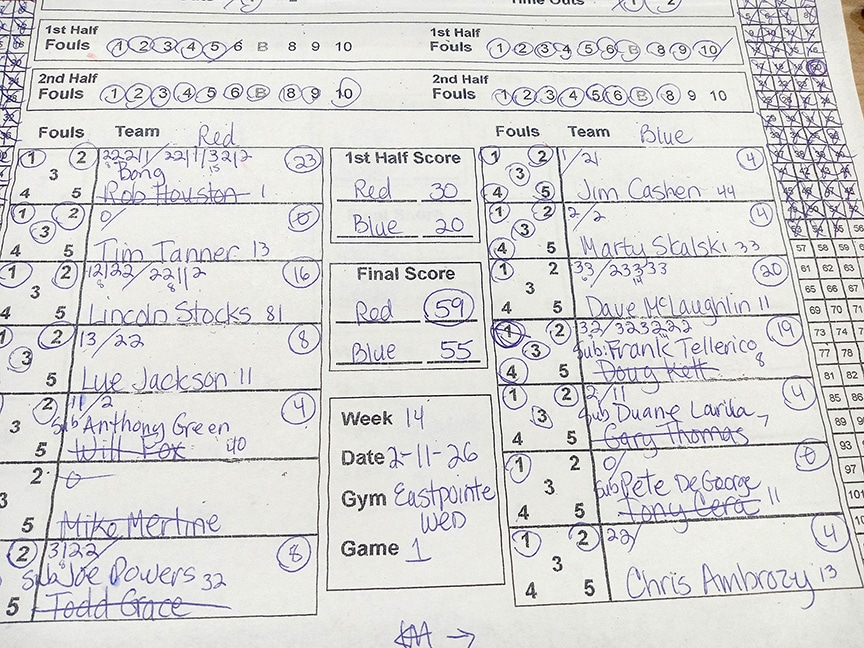 Time Outs 1 2
1st Half Fouls 1 2 3 4 5 6 B 8 9 10
1st Half Fouls 1 2 3 4 5 6 B 8 9 10
2nd Half Fouls 1 2 3 4 5 6 B 8 9 10
2nd Half Fouls 1 2 3 4 5 6 B 8 9 10
Fouls Team Red
1 2 3 4 5
Bong
Rob Houston 1
23
1 2 3 4 5
0/
Tim Tanner 13
0
1 2 3 4 5
12122/22112
Lincoln Stocks 81
16
1 2 3 5
13/22
Lue Jackson 11
8
2 3 5
11/2
Sub Anthony Green
Will Fox 40
4
2 3 5
0
Mike Mertine
2 5
3122
Sub Joe Powers 32
Todd Grace
8
1st Half Score
Red 30
Blue 20
Final Score
Red 59
Blue 55
Week 14
Date 2-11-26
Gym Eastpointe
Wed
Game 1
Fouls Team Blue
1 2 3 4 5
1/21
Jim Cashen 44
4
1 2 3 4 5
2/2
Marty Skalski 33
4
1 2 3 4 5
33/23333
Dave McLaughlin 11
20
1 2 3 4 5
32/323222
Sub: Frank Tellerico
Doug Kett 8
19
1 2 3 4 5
2/11
Sub Duane Lavila 7
Gary Thomas
4
1 2 3 4 5
0/
Sub Pete DeGeorge
Tony Cera 11
0
1 2 3 4 5
22/
Chris Ambrozy 13
4
57 58 59
61 62 63
65 66 67
69 70 71
73 74 75
77 78
81 82
85 86
89
93
97